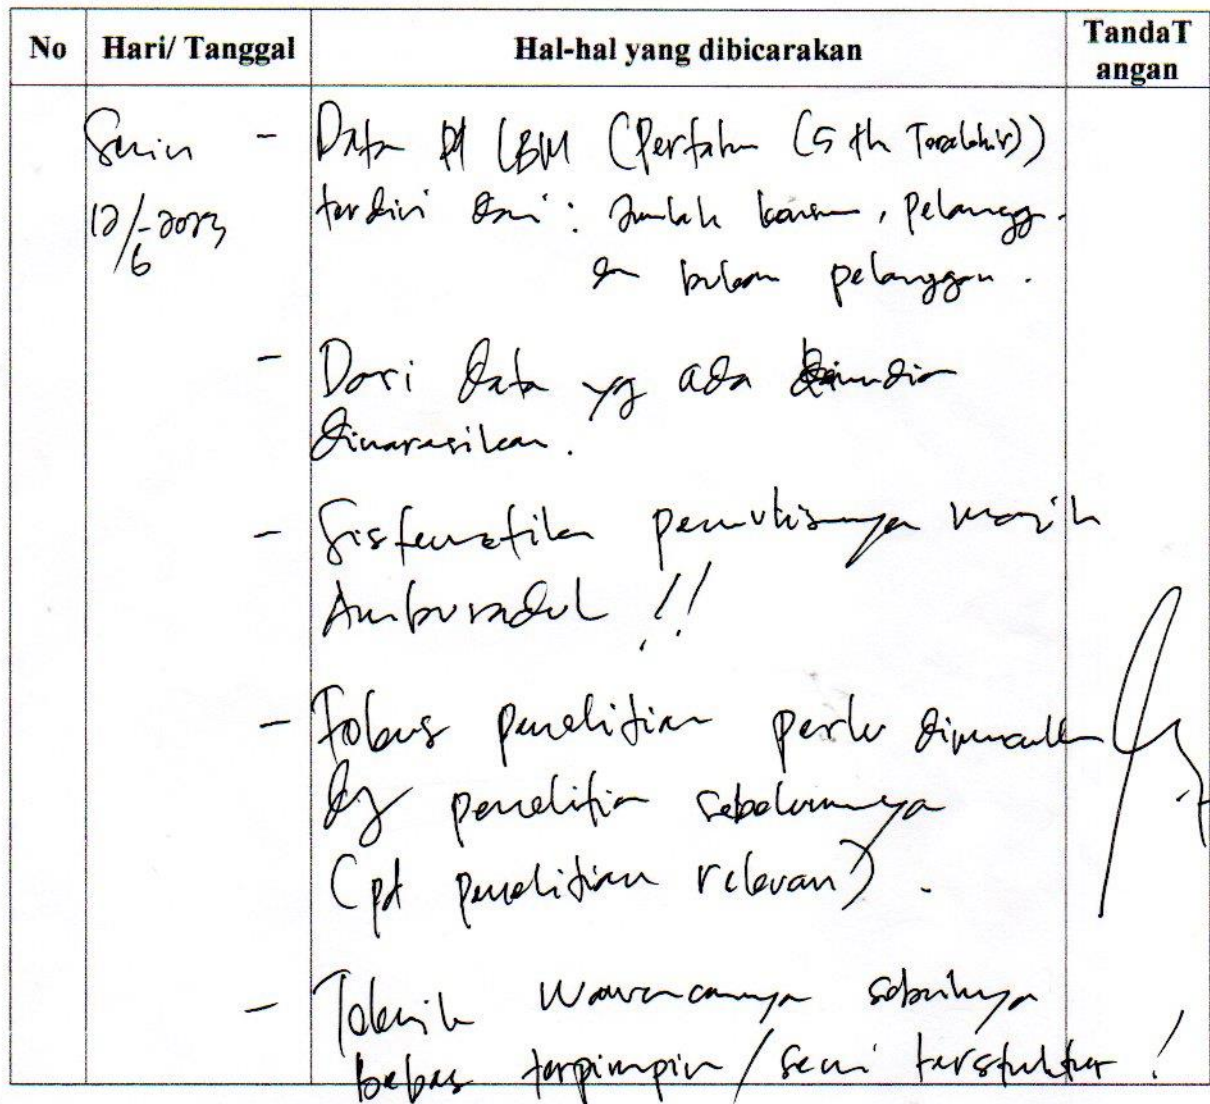 No Hari/ Tanggal Hal-hal yang dibicarakan TandaT
angan
Senin - Data PT LBM (Pertahun (5 th Terakhir))
12/6-2023 terdiri dari : Jumlah konsumen, pelanggan
dan bukan pelanggan.
- Dari data yg ada kemudian
dinarasikan.
- Sistematika penulisannya masih
Amburadul !!
- Fokus penelitian perlu
dg penelitian sebelumnya
(pd penelitian relevan).
- Teknik Wawancaranya sebaiknya
bebas terpimpin / semi terstuktur !